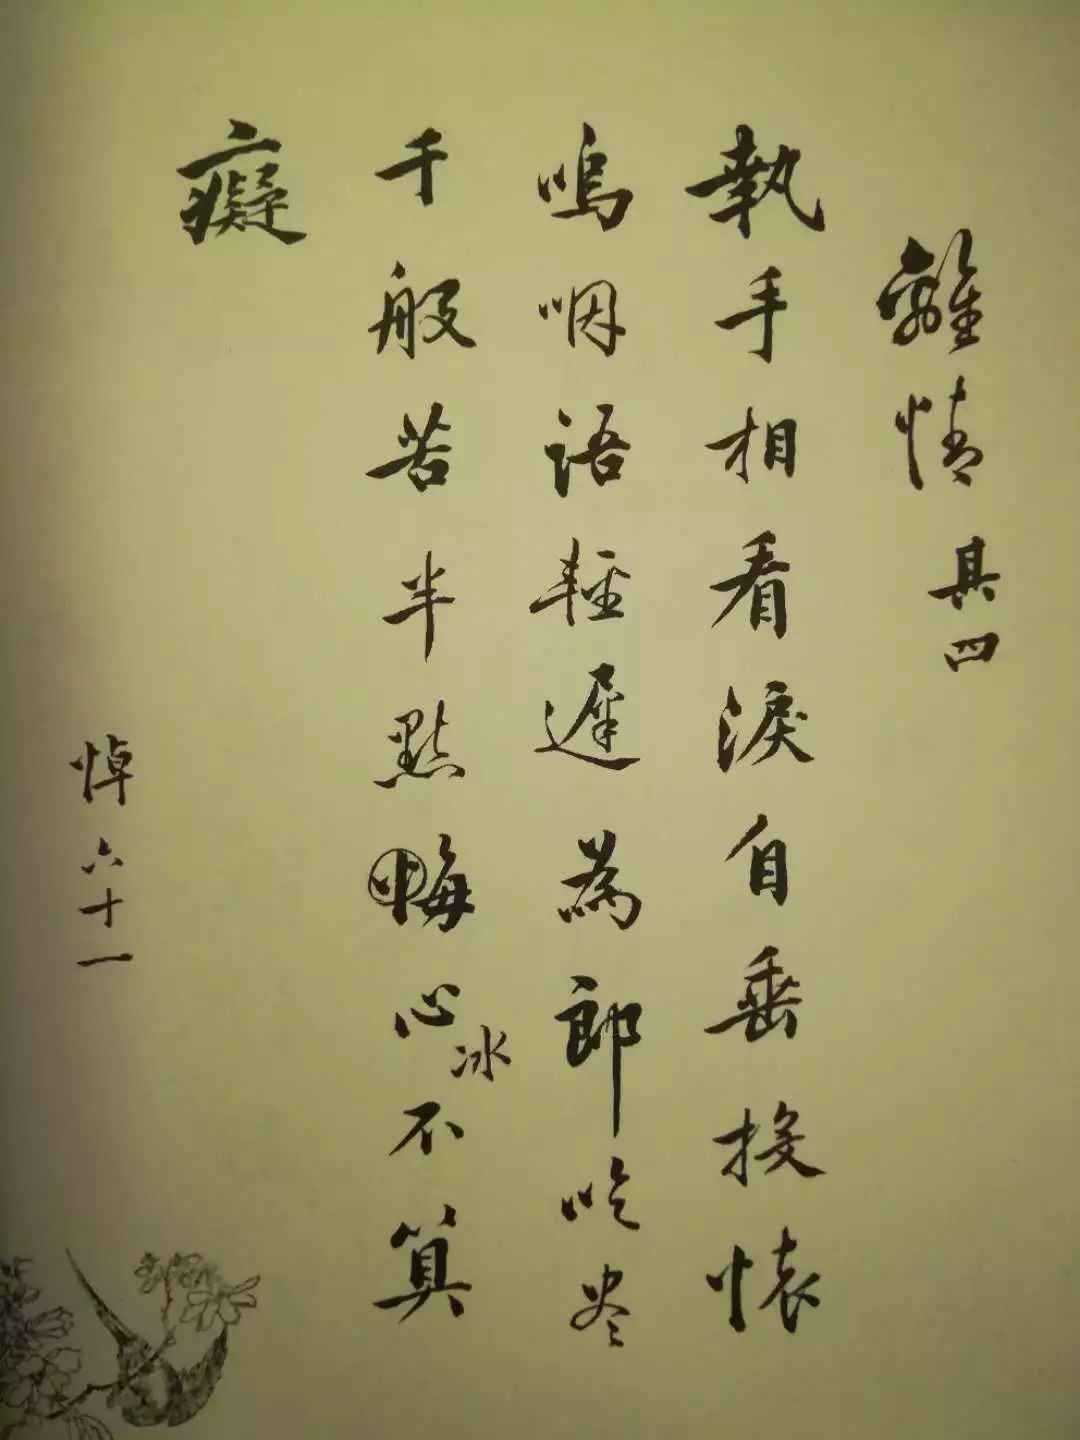 離情 其四
執手相看淚自垂投懷
嗚咽語輕遲為郎吃盡
千般苦半點悔心冰不算
癡
悼六十一